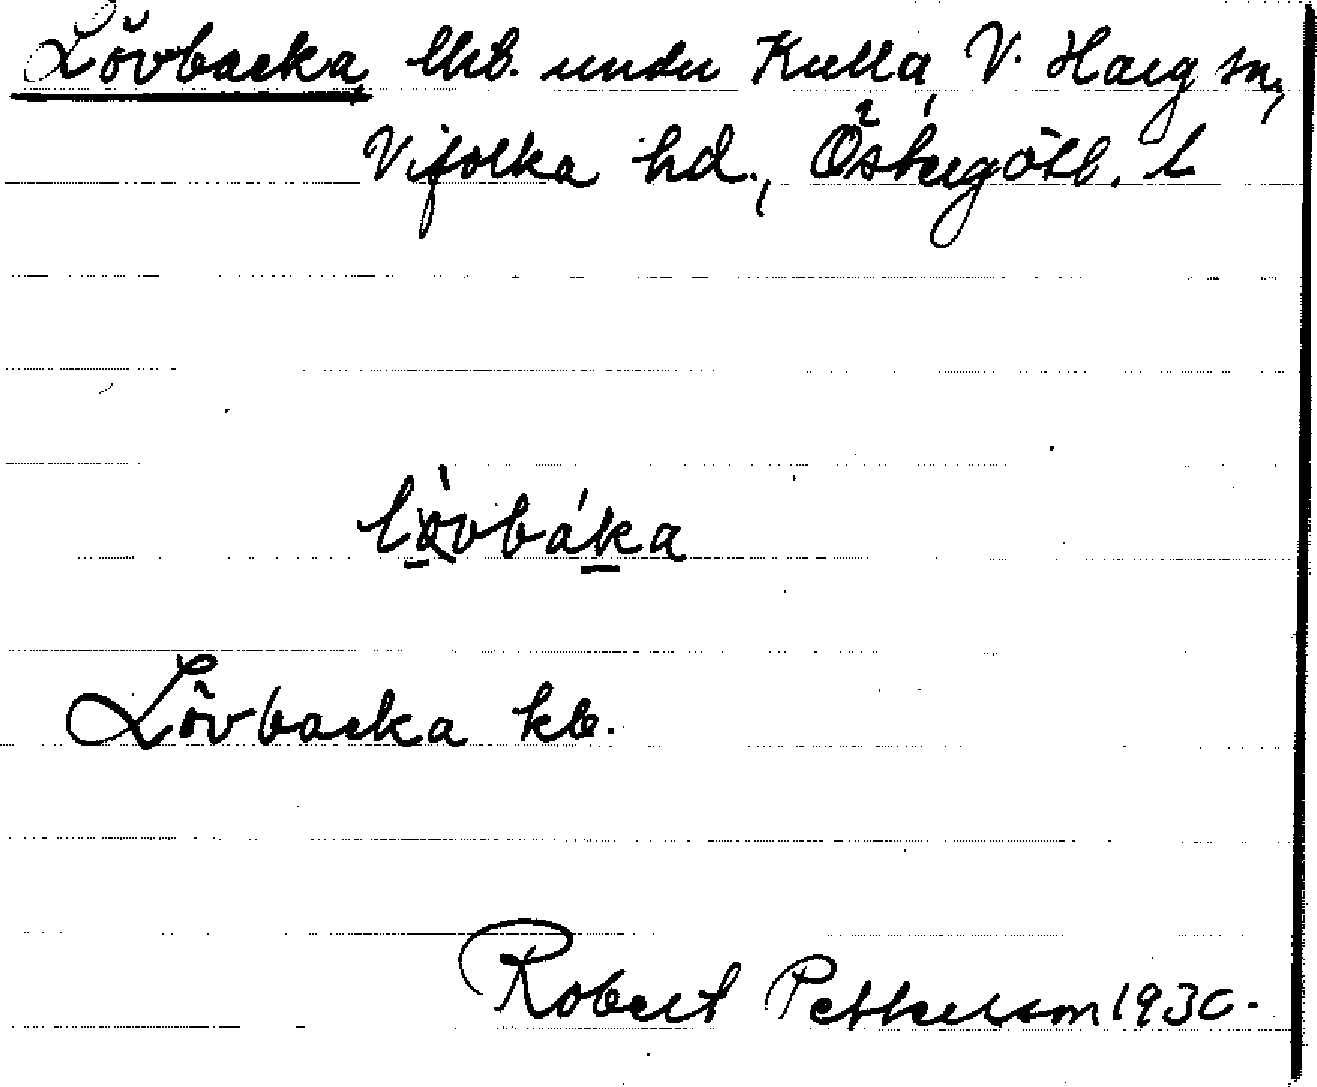 Lövbacka, lht. under Kulla, V. Harg sn,
Vifolka hd., Östergötl. l
lòvbáka
Lövbacka kb.
Robert Pettersson 1930.